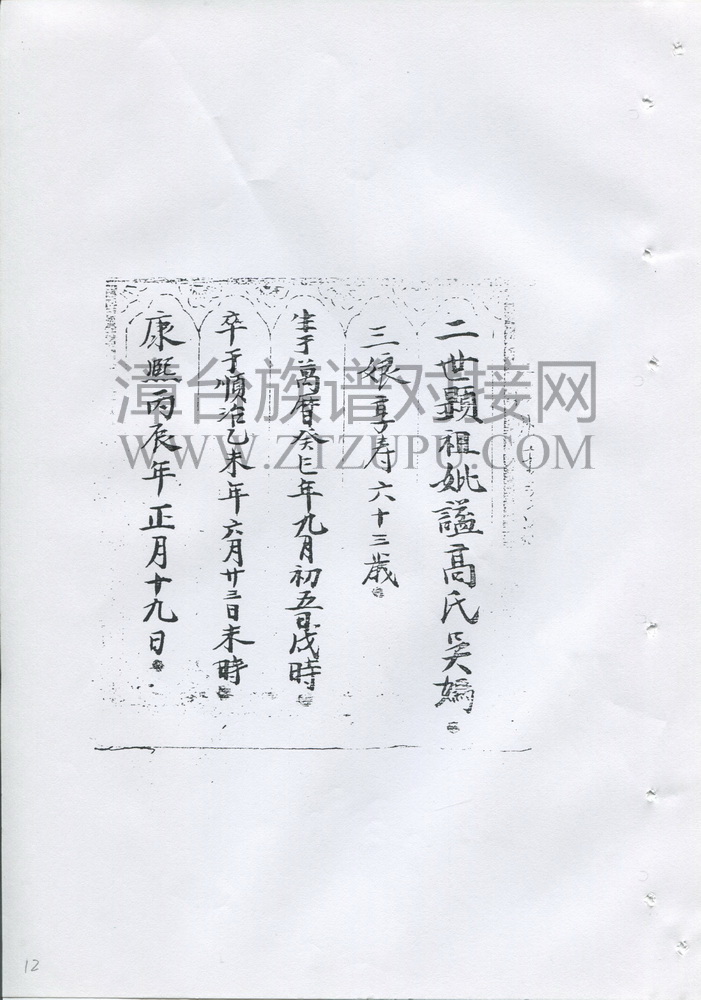 二世顕祖妣謚高氏吴媯
三娘享寿六十三歲
生于萬曆癸巳年九月初五日戌時
卒于順治乙未年六月廿三日未時
康熙丙辰年正月十九日
漳台族谱对接网
WWW.ZTZUPU.COM
12